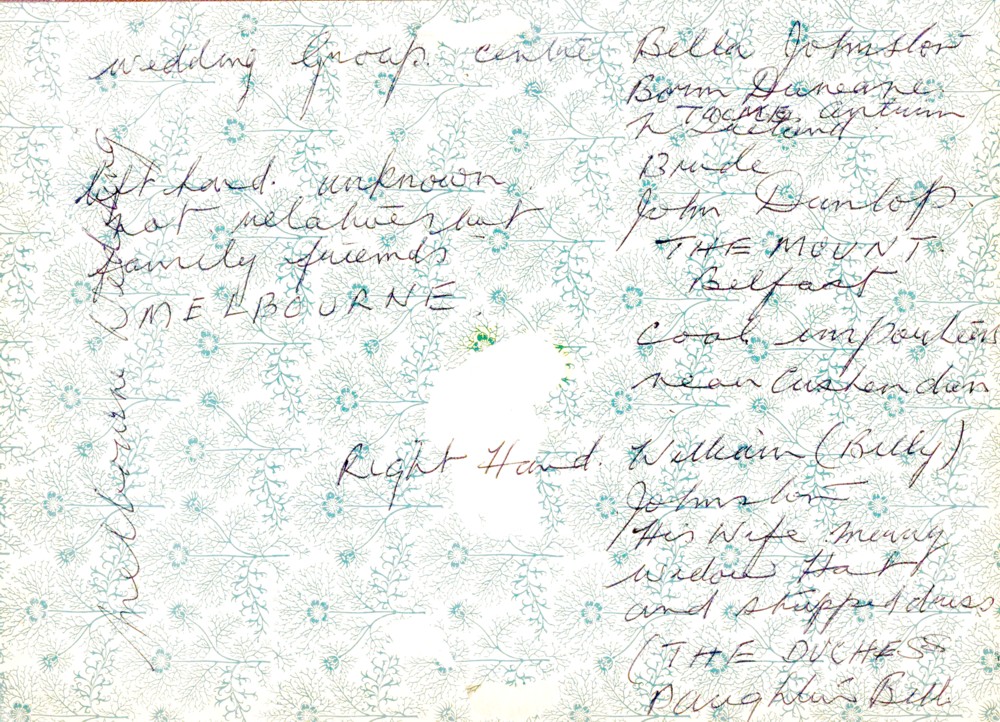 wedding Group. centre Bella Johnston
Born Duneane
TOOME Antrim
N Ireland.
Bride
John Dunlop.
THE MOUNT.
Belfast
coal importers
near Cushendun
left hand. unknown
not relatives but
family friends
MELBOURNE.
Right Hand. William (Billy)
Johnston
His Wife merry
widow Hat
and stripped dress
(THE DUCHESS
Daughter Bell
Melbourne